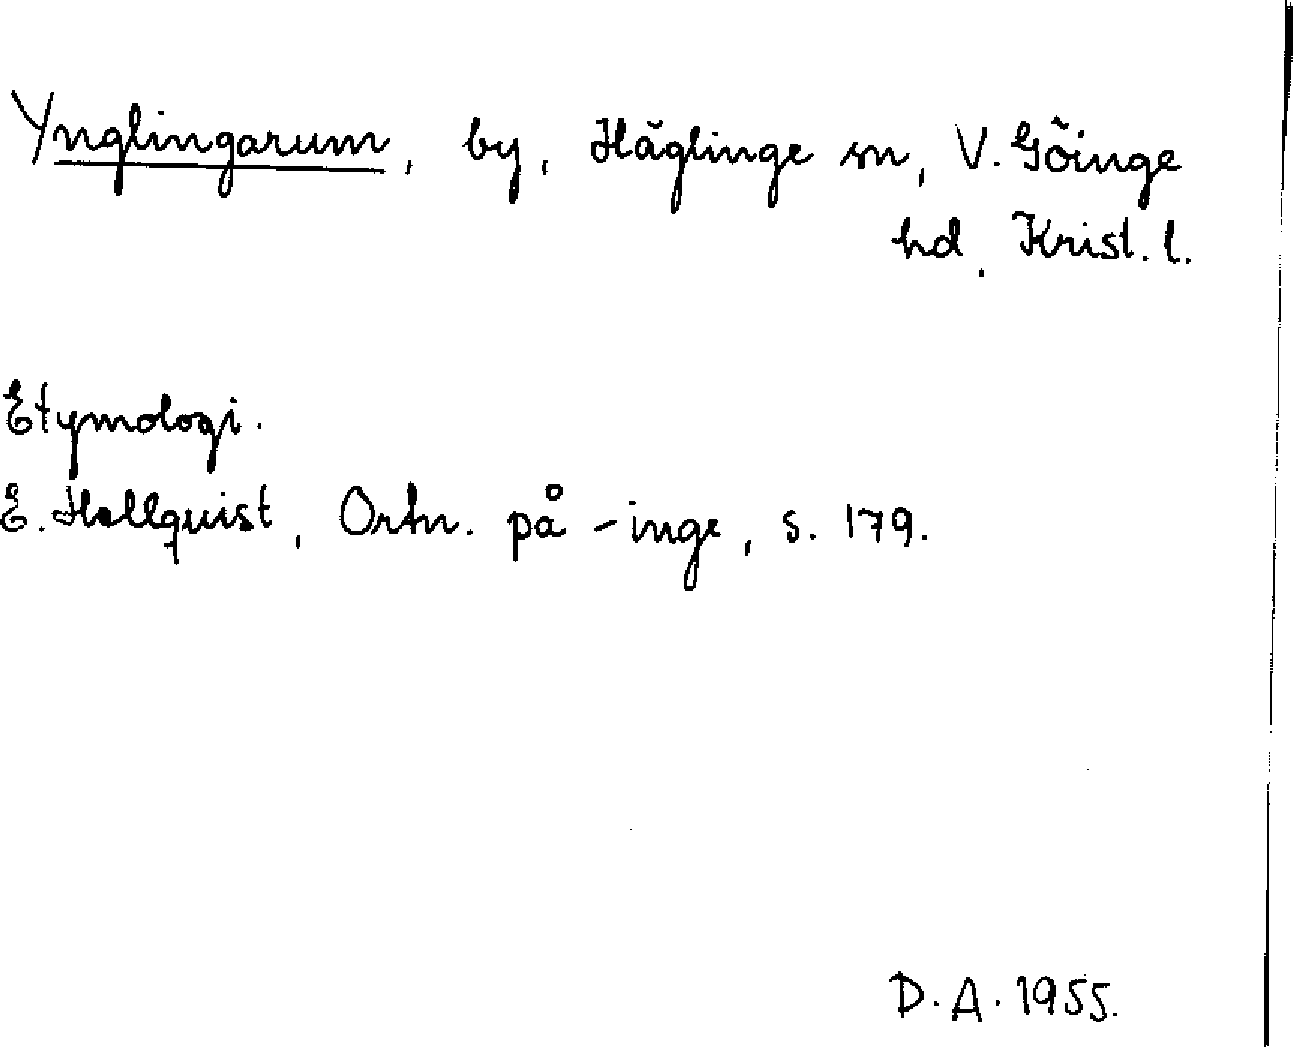 Ynglingarum, by, Häglinge sn, V. Göinge
hd, Krist. l.
Etymologi.
E. Hellquist, Ortn. på -inge, s. 179.
D.A. 1955.